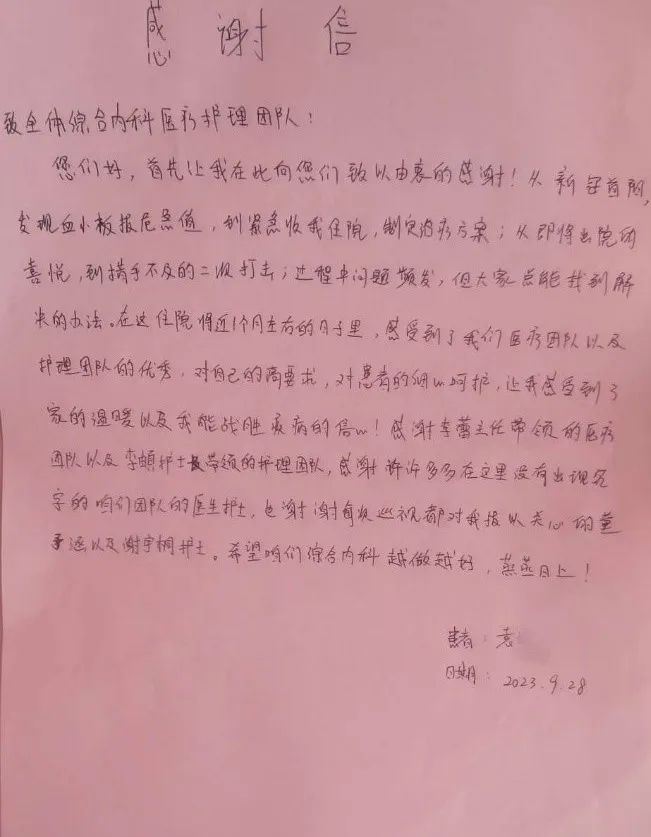 感谢信
致全体综合内科医疗护理团队:
您们好,首先让我在此向您们致以由衷的感谢!从新 首阳,
发现血小板报危急值,到紧急收我住院,制定治疗方案;从即将出院的
喜悦,到措手不及的二次打击;过程中问题频发,但大家总能找到解
决的办法。在这住院将近1个月左右的日子里,感受到了我们医疗团队以及
护理团队的优秀,对自己的高要求,对患者的细心呵护,让我感受到了
家的温暖以及我能战胜疾病的信心!感谢李蕾主任带领的医疗
团队以及李 护士长带领的护理团队,感谢许许多多在这里没有出现名
字的咱们团队的医生护士,也谢谢每次巡视都对我报以关心的董
子涵以及谢宇桐护士。希望咱们综合内科越做越好,蒸蒸日上!
患者:袁
日期:2023.9.28